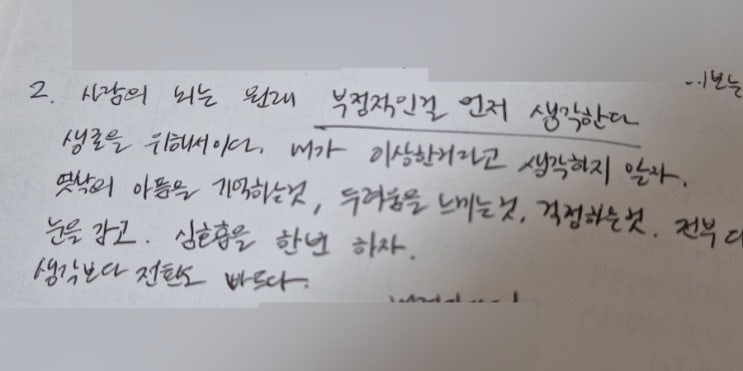 2. 사람의 뇌는 원래 부정적인걸 먼저 생각한다
생존을 위해서이다. 내가 이상한거라고 생각하지 말자.
옛날의 아픔을 기억하는것, 두려움을 느끼는것, 걱정하는것. 전부 다
눈을 감고. 심호흡을 한번 하자.
생각보다 전환도 빠르다.